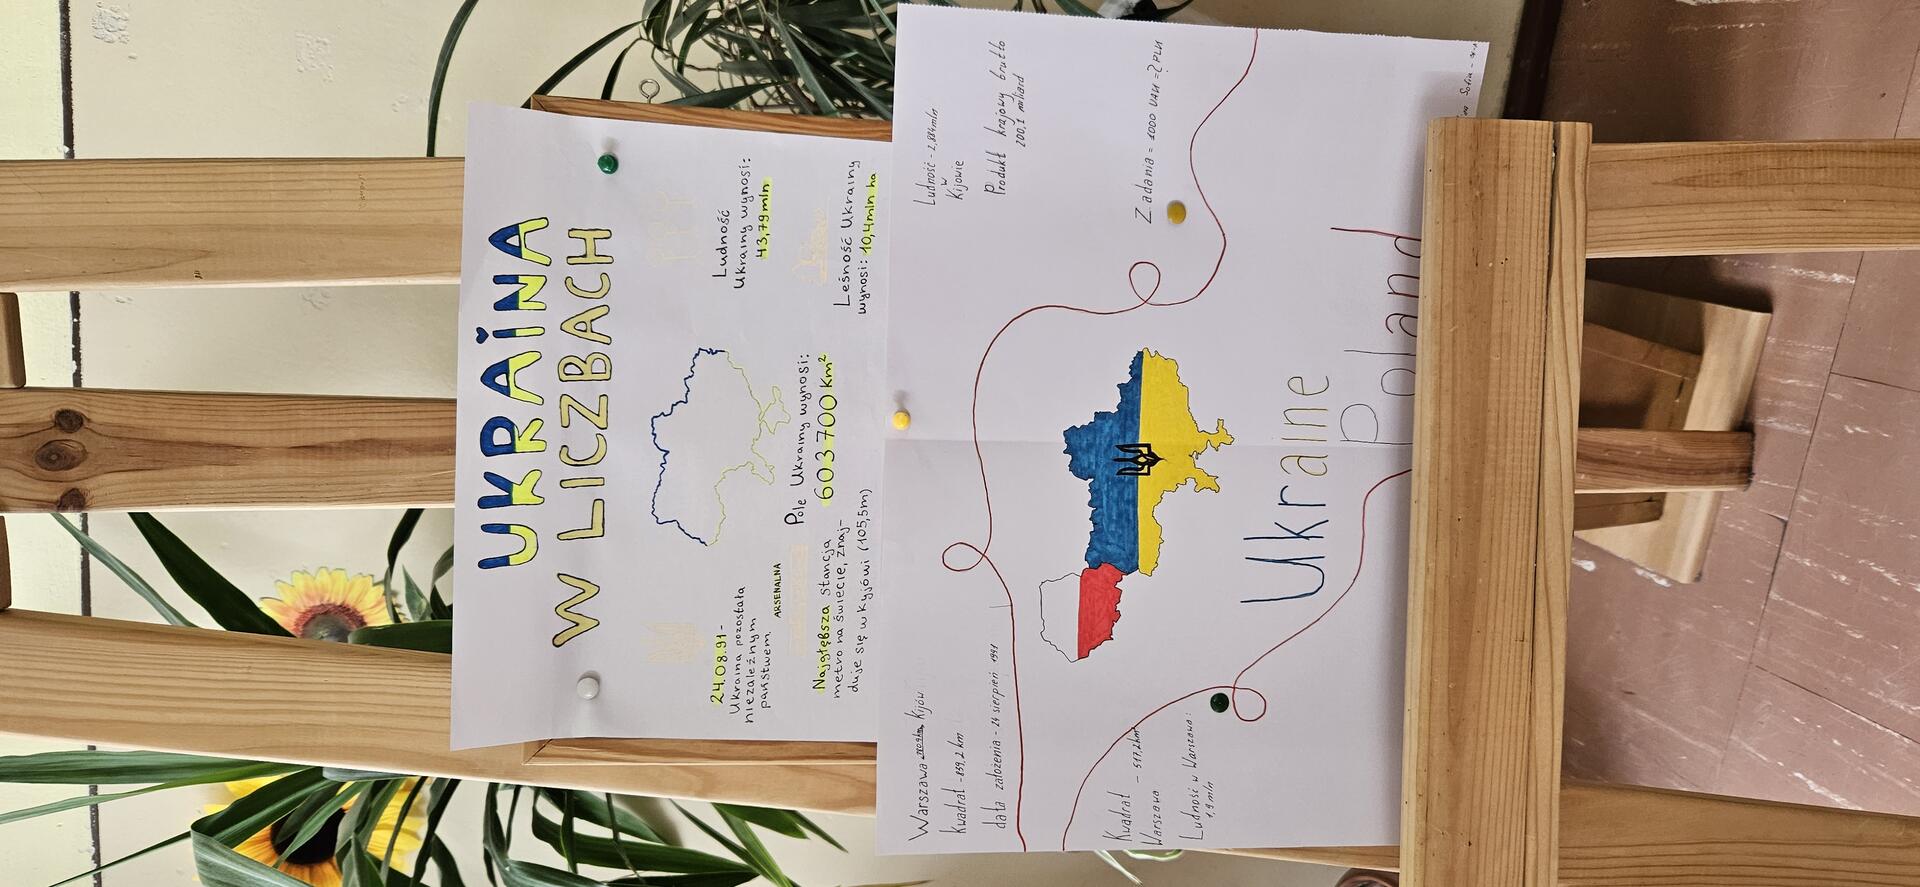 UKRAÏNA
W LICZBACH
24.08.91-
Ukraina pozostała
niezależnym
państwem
Ludność
Ukrainy wynosi:
43,79 mln
Pole Ukrainy wynosi:
603 700 km²
ARSENALNA
Najgłębsza stancja
metro na świecie, znaj-
duje się w Kyjówi (105,5m)
Leśność Ukrainy
wynosi: 10,4 mln ha
Warszawa Kijów
Kwadrat - 839,2 km
data założenia - 24 sierpień 1991
Ludność - 2,884 mln
w
Kijowie
Produkt krajowy brutto
200,1 miliard
Zadania = 1000 UAH = ? PLN
Kwadrat - 517,2 km
Warszawa
Ludność w Warszawa:
1,9 mln
Ukraine
Poland